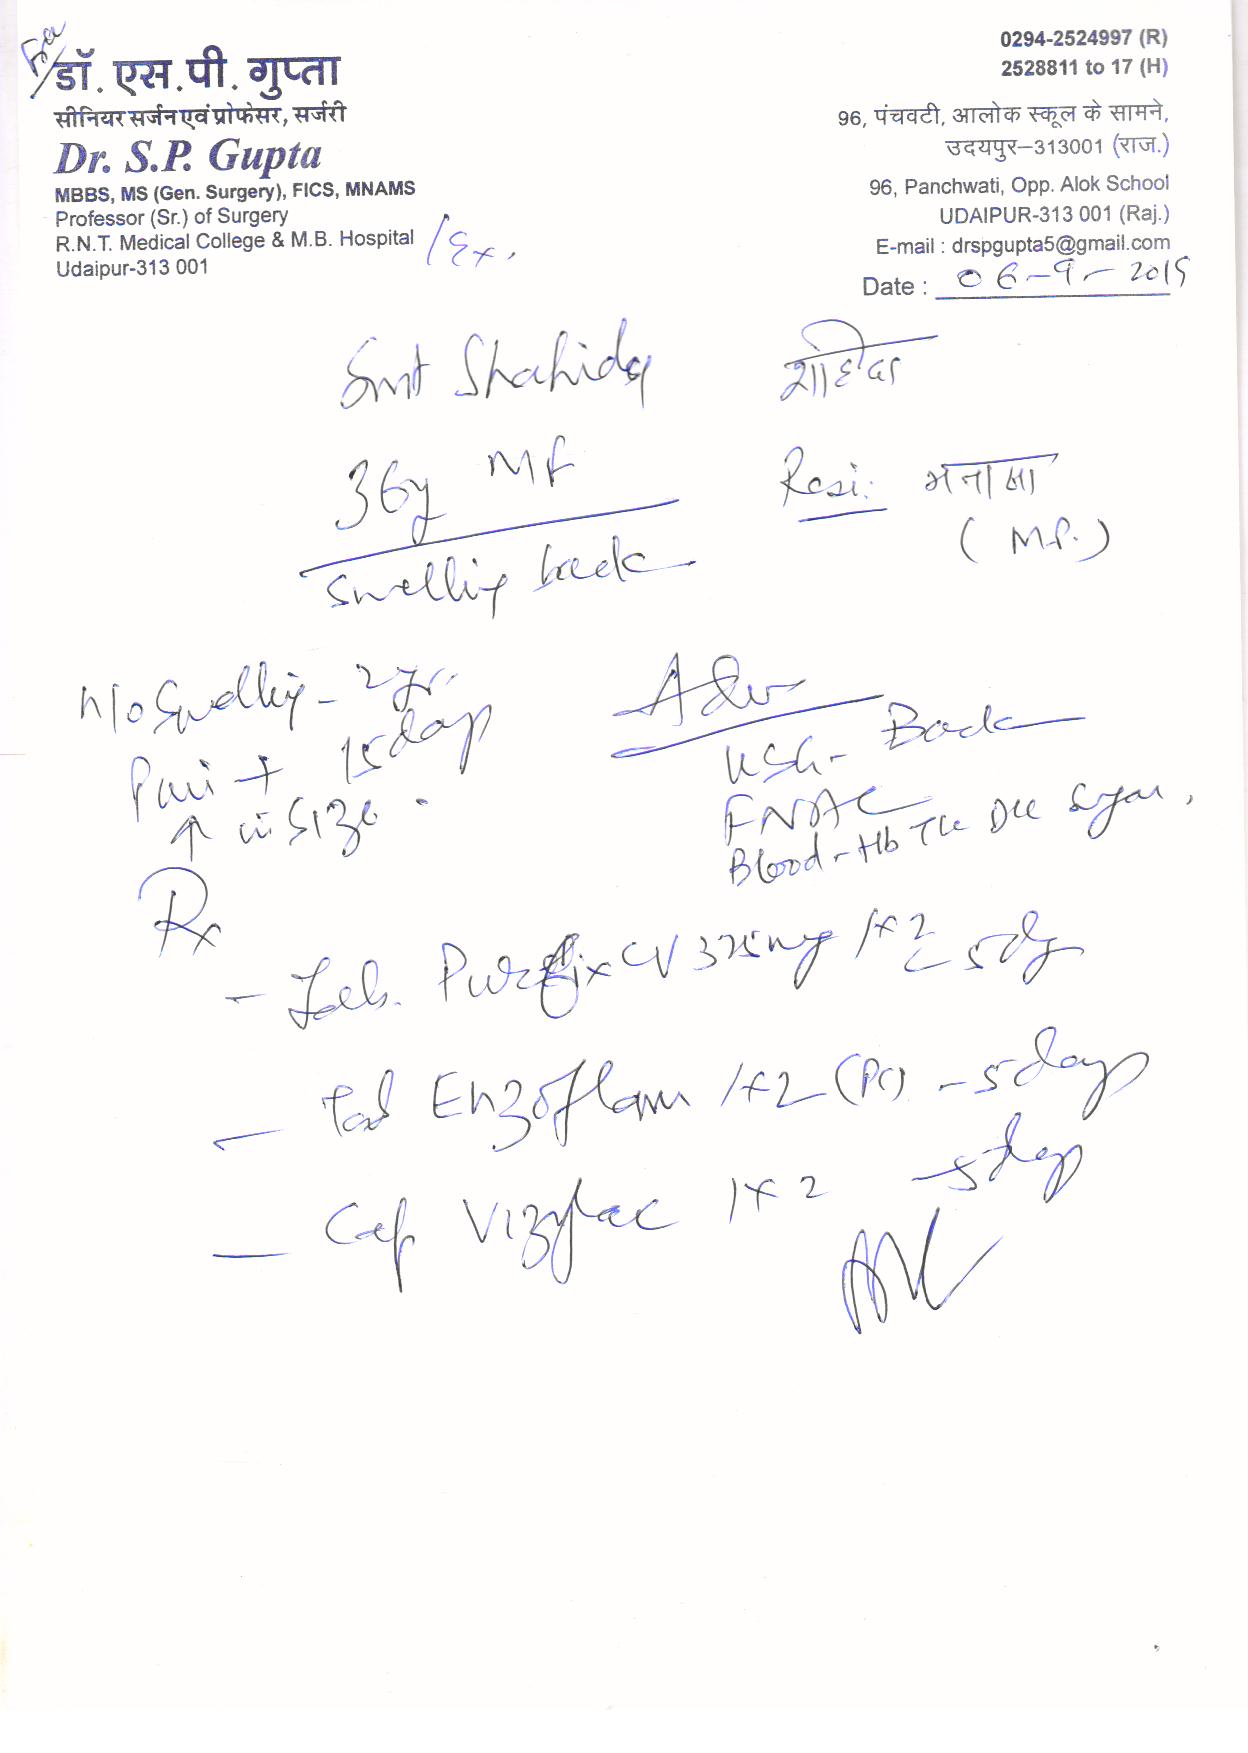 डॉ. एस.पी. गुप्ता
सीनियर सर्जन एवं प्रोफेसर, सर्जरी
Dr. S.P. Gupta
MBBS, MS (Gen. Surgery), FICS, MNAMS
Professor (Sr.) of Surgery
R.N.T. Medical College & M.B. Hospital /Ex.
Udaipur-313 001
0294-2524997 (R)
2528811 to 17 (H)
96, पंचवटी, आलोक स्कूल के सामने,
उदयपुर-313001 (राज.)
96, Panchwati, Opp. Alok School
UDAIPUR-313 001 (Raj.)
E-mail : drspgupta5@gmail.com
Date : 06-9-2015
Smt Shahida शाहिदा
36y MF Resi: मनासा
(M.P.)
Swelling back
H/o Swelling - 2 yr.
Pain + 15 days
↑ in size.
Adv
USG - Back
FNAC
Blood - Hb TLC DLC Sugar,
Rx
- Tab. CV 375mg 1x2 5dy
- Tab Enzoflam 1x2 (PC) - 5 days
- Cap Vizylac 1x2 - 5 days